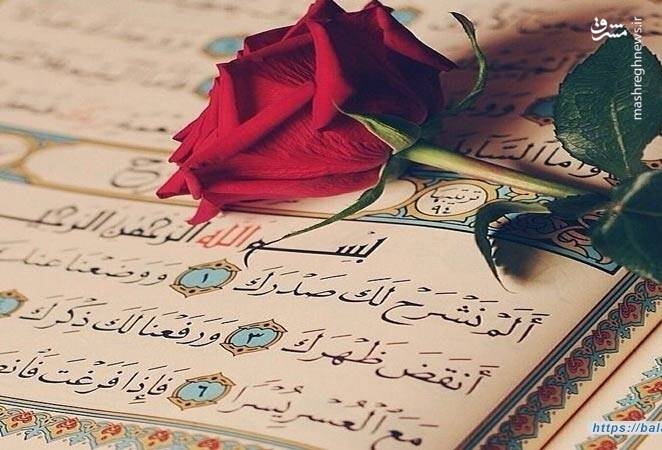 مشرق
mashreghnews.ir
وأما السائل
ترتيبها ٩٤
بسم الله الرحمن الرحيم
أَلَمْ نَشْرَحْ لَكَ صَدْرَكَ ١ وَوَضَعْنَا عَنكَ
أَنقَضَ ظَهْرَكَ ٣ وَرَفَعْنَا لَكَ ذِكْرَكَ
مَعَ الْعُسْرِ يُسْرًا ٦ فَإِذَا فَرَغْتَ فَانصَ
https://bala